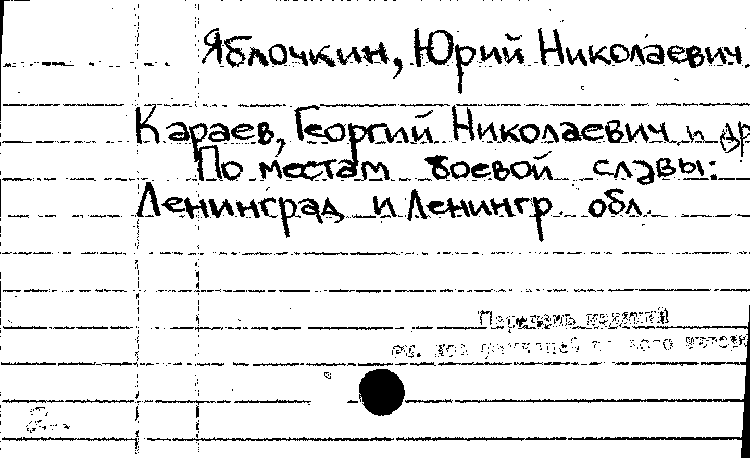 Яблочкин, Юрий Николаевич
Караев, Георгий Николаевич и др
По местам боевой славы:
Ленинград и Ленингр. обл.
Перечень изданий
см. под